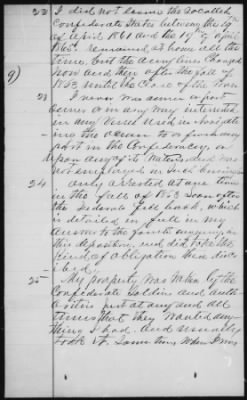 22 I did not leave the So called
Confederate States between the 19th
of April 1861 and the 19th of April
1865. remained at home all the
time, but the army lines changed
now and then after the fall of
9) 1863 until the close of the war
23 I never was owner or part
owner or in any way interested
in any Vessel used in Navigating
the ocean to or from any
port in the Confederacy, or
upon any of its Waters, and was
not employed in such business
24 Only arrested at one time
in the fall of 1863 soon after
the federals fell back, which
is detailed in full in my
answer to the fourth
this deposition, and did take the
kind of obligation there described
25 My property was taken by the
Confederate Soldiers and authorities
just at any and all
times that they wanted anything
I had. And usually
took it. Some time when I was